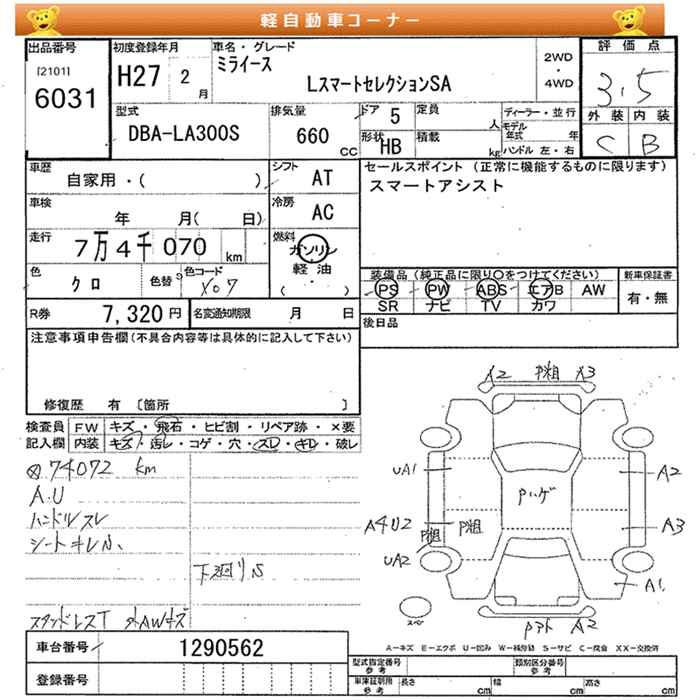 軽自動車コーナー
出品番号 初度登録年月 車名・グレード 2WD・4WD 評価点
[2101] 6031 H27 2月 ミライース LスマートセレクションSA 3.5
型式 排気量 ドア 5 定員 人 ディーラー・並行 外装 内装
DBA-LA300S 660 CC 形状 HB 積載 kg モデル年式 年 ハンドル 左・右 C B
車歴 シフト セールスポイント (正常に機能するものに限ります)
自家用・( ) AT スマートアシスト
車検 年 月( 日) 冷房 AC
走行 7万4千070 km 燃料 ガソリン 軽油 ( )
色 クロ 色替 色コード X07 装備品 (純正品に限り○をつけてください) 新車保証書
PS PW ABS エアB AW 有・無
SR ナビ TV カワ
R券 7,320円 名変通知期限 月 日 後日品
注意事項申告欄(不具合内容等は具体的に記入して下さい)
修復歴 有 〔箇所 〕
検査員 FW キズ・飛石・ヒビ割・リペア跡・×要
記入欄 内装 キズ・汚レ・コゲ・穴・スレ・キレ・破レ
74072 km
A.U
ハンドルスレ
シートキレ小
下廻りS
スタッドレスT 外AWキズ
A2 P粗 A3
UA1 Pハゲ A2
A4U2 P粗 P粗 A3
UA2 A1
スペア Pアト A2
A-キズ E-エクボ U-凹み W-補修跡 S-サビ C-腐食 XX-交換済
車台番号 1290562
登録番号
型式指定番号 参考 類別区分番号 参考
車庫証明用 参考 長さ cm 幅 cm 高さ cm